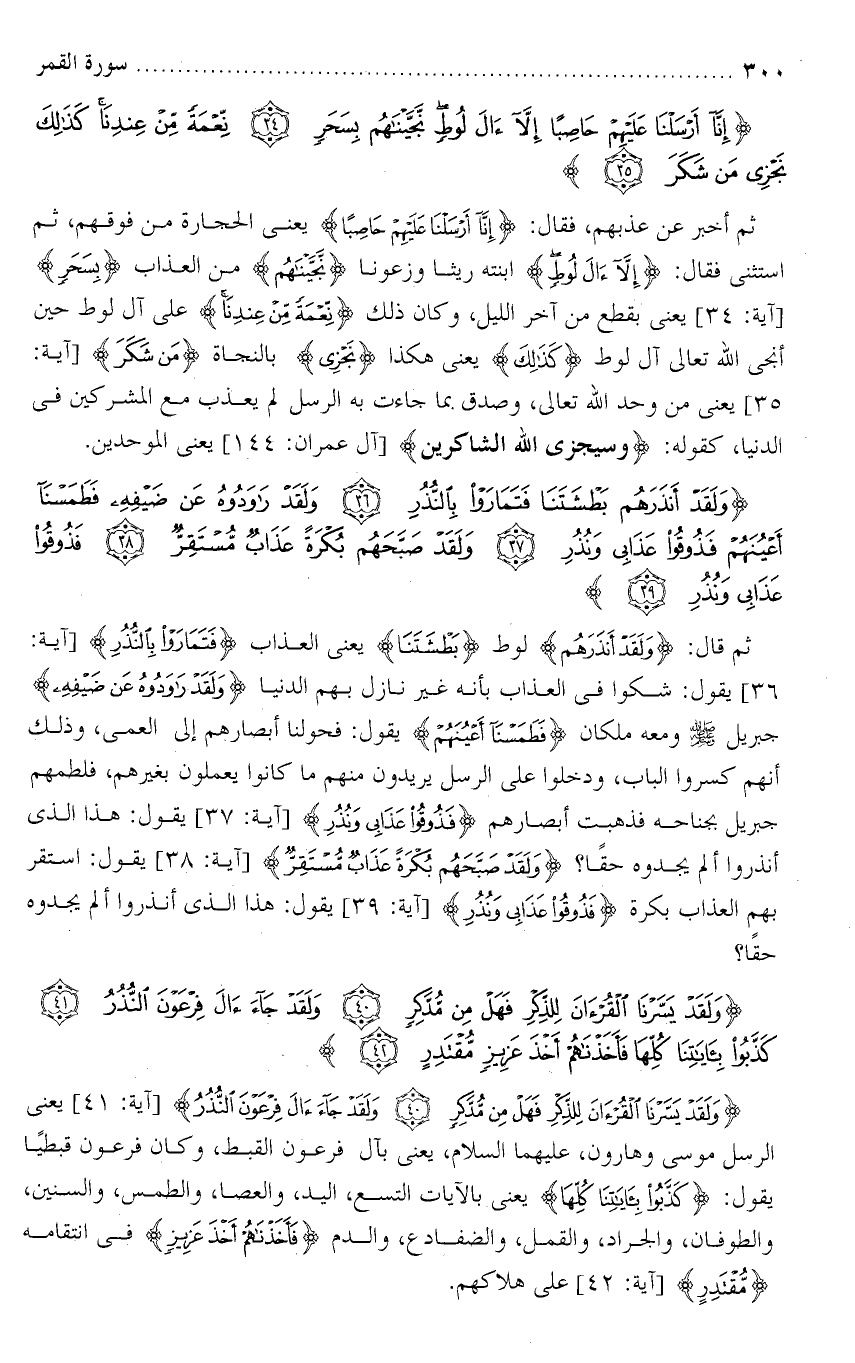 ٣٠٠ ........................................................................ سورة القمر
﴿ إِنَّآ أَرْسَلْنَا عَلَيْهِمْ حَاصِبًا إِلَّآ ءَالَ لُوطٍۖ نَّجَّيْنَٰهُم بِسَحَرٍ ٣٤ نِّعْمَةً مِّنْ عِندِنَاۚ كَذَٰلِكَ
نَجْزِى مَن شَكَرَ ٣٥ ﴾
ثم أخبر عن عذبهم، فقال: ﴿إِنَّآ أَرْسَلْنَا عَلَيْهِمْ حَاصِبًا﴾ يعنى الحجارة من فوقهم، ثم
استثنى فقال: ﴿إِلَّآ ءَالَ لُوطٍۖ﴾ ابنته ريثا وزعونا ﴿نَّجَّيْنَٰهُم﴾ من العذاب ﴿بِسَحَرٍ﴾
[آية: ٣٤] يعنى بقطع من آخر الليل، وكان ذلك ﴿نِّعْمَةً مِّنْ عِندِنَاۚ﴾ على آل لوط حين
أنجى الله تعالى آل لوط ﴿كَذَٰلِكَ﴾ يعنى هكذا ﴿نَجْزِى﴾ بالنجاة ﴿مَن شَكَرَ﴾ [آية:
٣٥] يعنى من وحد الله تعالى، وصدق بما جاءت به الرسل لم يعذب مع المشركين فى
الدنيا، كقوله: ﴿وسيجزى الله الشاكرين﴾ [آل عمران: ١٤٤] يعنى الموحدين.
﴿وَلَقَدْ أَنذَرَهُم بَطْشَتَنَا فَتَمَارَوْا۟ بِٱلنُّذُرِ ٣٦ وَلَقَدْ رَٰوَدُوهُ عَن ضَيْفِهِۦ فَطَمَسْنَآ
أَعْيُنَهُمْ فَذُوقُوا۟ عَذَابِى وَنُذُرِ ٣٧ وَلَقَدْ صَبَّحَهُم بُكْرَةً عَذَابٌ مُّسْتَقِرٌّ ٣٨ فَذُوقُوا۟
عَذَابِى وَنُذُرِ ٣٩ ﴾
ثم قال: ﴿وَلَقَدْ أَنذَرَهُم﴾ لوط ﴿بَطْشَتَنَا﴾ يعنى العذاب ﴿فَتَمَارَوْا۟ بِٱلنُّذُرِ﴾ [آية:
٣٦] يقول: شكوا فى العذاب بأنه غير نازل بهم الدنيا ﴿وَلَقَدْ رَٰوَدُوهُ عَن ضَيْفِهِۦ﴾
جبريل ﷺ ومعه ملكان ﴿فَطَمَسْنَآ أَعْيُنَهُمْ﴾ يقول: فحولنا أبصارهم إلى العمى، وذلك
أنهم كسروا الباب، ودخلوا على الرسل يريدون منهم ما كانوا يعملون بغيرهم، فلطمهم
جبريل بجناحه فذهبت أبصارهم ﴿فَذُوقُوا۟ عَذَابِى وَنُذُرِ﴾ [آية: ٣٧] يقول: هذا الذى
أنذروا ألم يجدوه حقًا؟ ﴿وَلَقَدْ صَبَّحَهُم بُكْرَةً عَذَابٌ مُّسْتَقِرٌّ﴾ [آية: ٣٨] يقول: استقر
بهم العذاب بكرة ﴿فَذُوقُوا۟ عَذَابِى وَنُذُرِ﴾ [آية: ٣٩] يقول: هذا الذى أنذروا ألم يجدوه
حقًا؟
﴿وَلَقَدْ يَسَّرْنَا ٱلْقُرْءَانَ لِلذِّكْرِ فَهَلْ مِن مُّدَّكِرٍ ٤٠ وَلَقَدْ جَآءَ ءَالَ فِرْعَوْنَ ٱلنُّذُرُ ٤١
كَذَّبُوا۟ بِـَٔايَٰتِنَا كُلِّهَا فَأَخَذْنَٰهُمْ أَخْذَ عَزِيزٍ مُّقْتَدِرٍ ٤٢ ﴾
﴿وَلَقَدْ يَسَّرْنَا ٱلْقُرْءَانَ لِلذِّكْرِ فَهَلْ مِن مُّدَّكِرٍ ٤٠ وَلَقَدْ جَآءَ ءَالَ فِرْعَوْنَ ٱلنُّذُرُ﴾ [آية: ٤١] يعنى
الرسل موسى وهارون، عليهما السلام، يعنى بآل فرعون القبط، وكان فرعون قبطيًا
يقول: ﴿كَذَّبُوا۟ بِـَٔايَٰتِنَا كُلِّهَا﴾ يعنى بالآيات التسع، اليد، والعصا، والطمس، والسنين،
والطوفان، والجراد، والقمل، والضفادع، والدم ﴿فَأَخَذْنَٰهُمْ أَخْذَ عَزِيزٍ﴾ فى انتقامه
﴿مُّقْتَدِرٍ﴾ [آية: ٤٢] على هلاكهم.